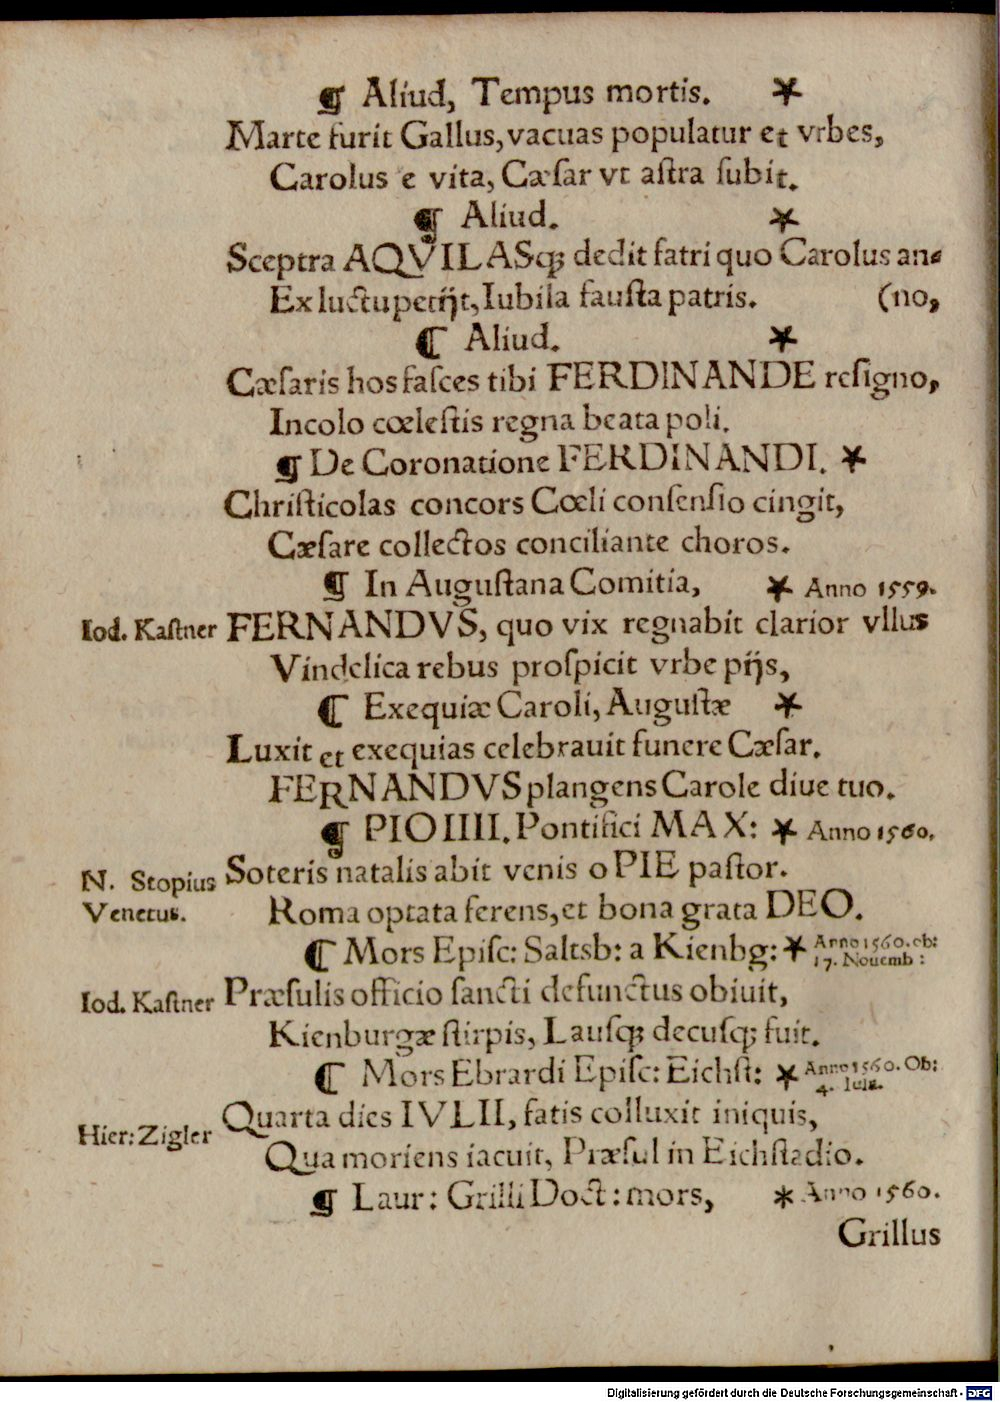 ¶ Aliud, Tempus mortis. *
Marte furit Gallus, vacuas populatur et vrbes,
Carolus e vita, Cæſar vt aſtra ſubit.
¶ Aliud. *
Sceptra AQVILASqꝫ dedit fatri quo Carolus an⸗
Ex luctu petijt, Iubila fauſta patris. (no,
¶ Aliud. *
Cæſaris hos faſces tibi FERDINANDE reſigno,
Incolo cœleſtis regna beata poli.
¶ De Coronatione FERDINANDI. *
Chriſticolas concors Cœli conſenſio cingit,
Cæſare collectos conciliante choros.
¶ In Auguſtana Comitia, * Anno 1559.
Iod. Kaſtner FERNANDVS, quo vix regnabit clarior vllus
Vindelica rebus proſpicit vrbe pijs,
¶ Exequiæ Caroli, Auguſtæ *
Luxit et exequias celebrauit funere Cæſar.
FERNANDVS plangens Carole diue tuo.
¶ PIO IIII. Pontifici MAX: * Anno 1560.
N. Stopius Soteris natalis abit venis o PIE paſtor.
Venetus. Roma optata ferens, et bona grata DEO.
¶ Mors Epiſc: Saltsb: a Kienbg: * Anno 1560. ob:
17. Nouemb:
Iod. Kaſtner Præſulis officio ſancti defunctus obiuit,
Kienburgæ ſtirpis, Lauſqꝫ decuſqꝫ fuit.
¶ Mors Ebrardi Epiſc: Eichſt: * Anno 1560. Ob:
4. Iulii.
Hier: Zigler Quarta dies IVLII, fatis colluxit iniquis,
Qua moriens iacuit, Præſul in Eichſtadio.
¶ Laur: Grilli Doct: mors, * Anno 1560.
Grillus
Digitalisierung gefördert durch die Deutsche Forschungsgemeinschaft - DFG